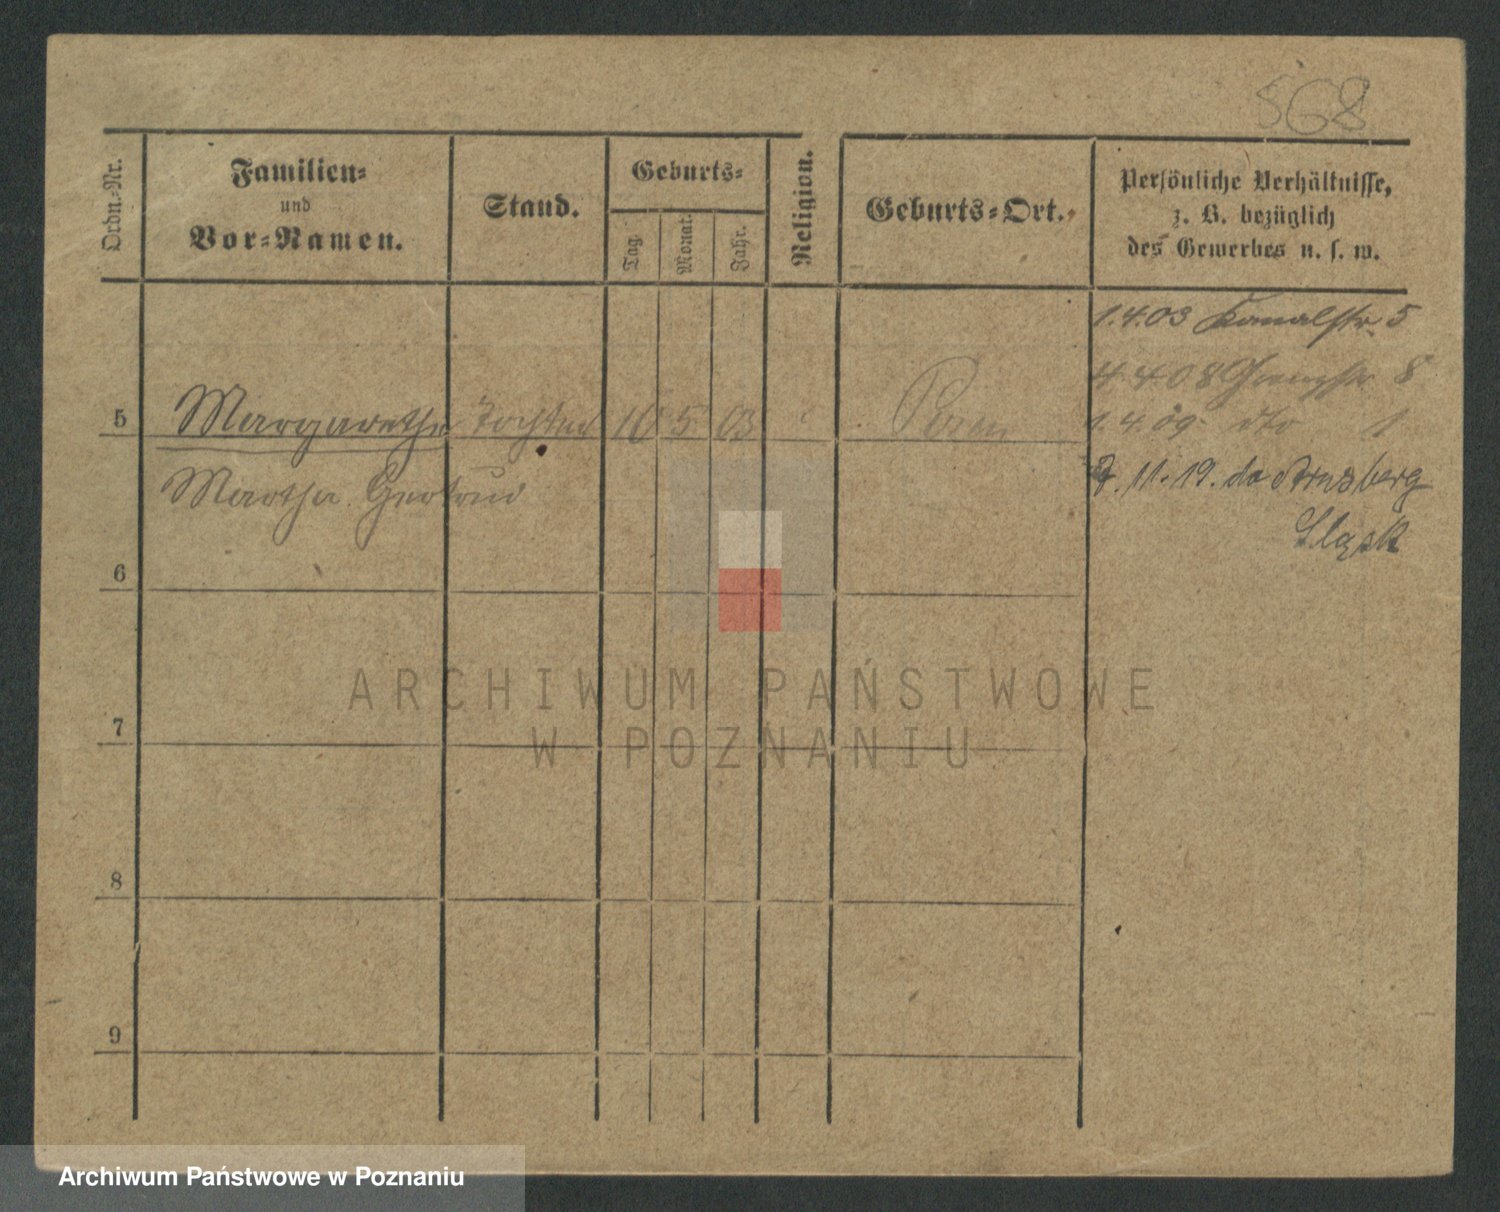 568
Ordn.-Nr.
Familien-
und
Vor-Namen.
Stand.
Geburts-
Tag.
Monat.
Jahr.
Religion.
Geburts-Ort.
Persönliche Verhältnisse,
z. B. bezüglich
des Gewerbes u. s. w.
1.4.03 Kanalstr. 5
4.4.08 8
5 Margarethe Tochter 10 5 03 Posen
1.4.09. dto 1
Martha Gertrud
7.11.19. do Arnsberg
Śląsk
6
7
8
9
ARCHIWUM PAŃSTWOWE
W POZNANIU
Archiwum Państwowe w Poznaniu